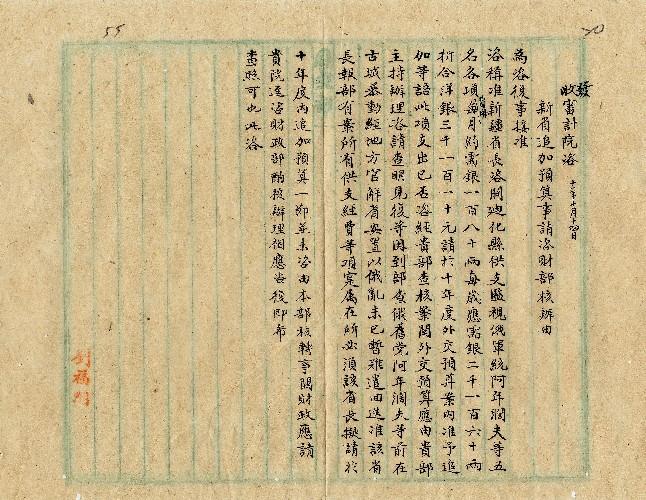 發
收審計院咨
十一年十月十四日
新省追加預算事請咨財部核辦由
為咨復事接准
咨稱准新疆省長咨開迪化縣供支監視俄軍統阿年闊夫等五
名各項每月約需銀一百八十兩每歲應需銀二千一百六十兩
折合洋銀三千一百一十元請於十年度外交預算案內准予追
加等語此項支出已否咨經貴部查核案關外交預算應由貴部
主持辦理咨請查照見復等因到部查俄舊党阿年闊夫等前在
古城暴動經地方官解省安置以俄亂未已暫難遣回迭准該省
長報部有案所有供支經費等項寔屬在所必須該省長擬請於
十年度內追加預算一節並未咨由本部核轉事關財政應請
貴院逕咨財政部酌核辦理相應咨復即希
查照可也此咨
劉福
55